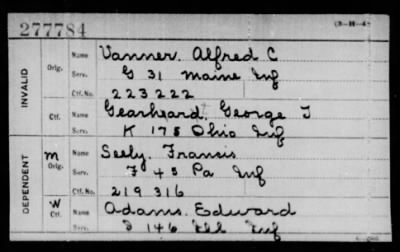 277784 (3-H-4)
INVALID Orig. Name Vanner. Alfred C
Serv. G 31 Maine Inf
Ctf. No. 223222
Ctf. Name Gearheard, George T
Serv. K 178 Ohio Inf
DEPENDENT M Orig. Name Seely. Francis
Serv. F 45 Pa Inf
Ctf. No. 219316
W Ctf. Name Adams. Edward
146 Ill Inf